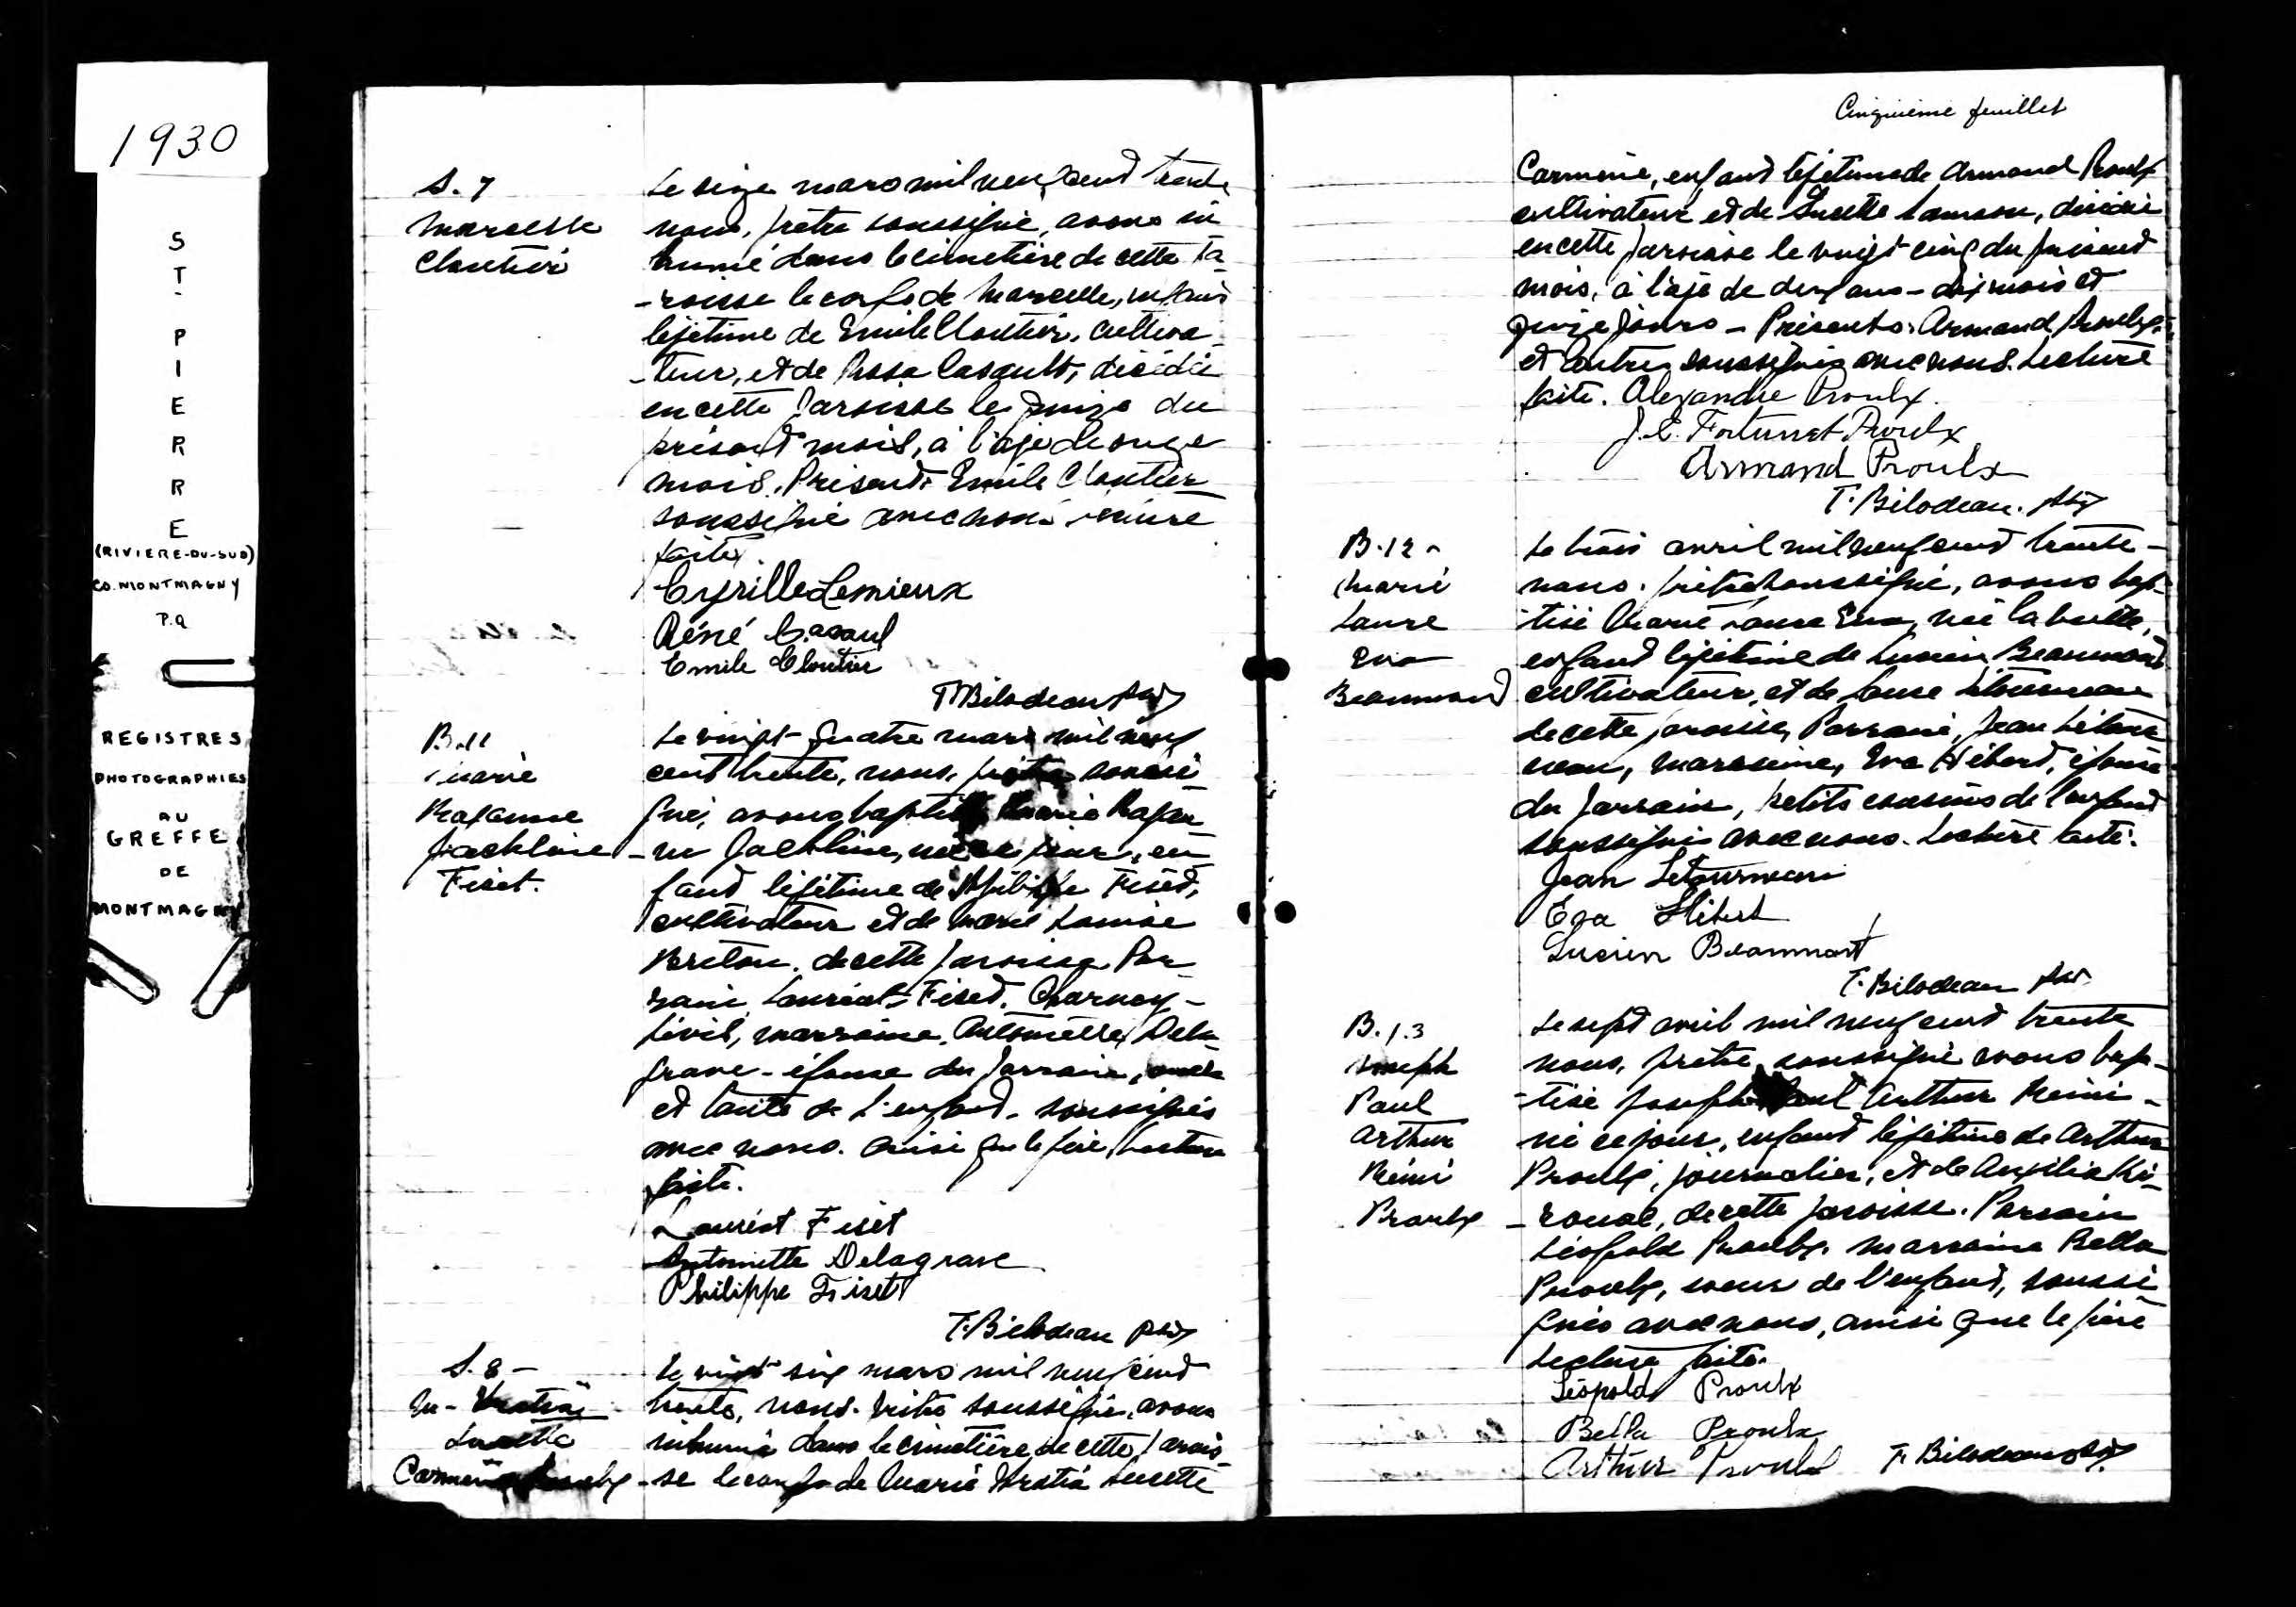 1930
ST PIERRE
(RIVIERE-DU-SUD)
CO. MONTMAGNY
P.Q
REGISTRES
PHOTOGRAPHIES
AU
GREFFE
DE
MONTMAGNY
S. 7
Marcelle
Cloutier
Le seize mars mil neuf cent trente
nous, prêtre soussigné, avons in
humé dans le cimetière de cette pa-
-roisse le corps de Marcelle, enfant
légitime de Emile Cloutier, cultiva-
-teur, et de Rosa Casault, décédée
en cette paroisse le quinze du
présent mois, à l'âge de onze
mois. Présents Emile Cloutier
soussigné avec nous. Lecture
faite.
Cyrille Lemieux
Réné Casaul
Emile Cloutier
T. Bilodeau ptre
B.11
Marie
Jackline
Fiset.
Le vingt-quatre mars mil neuf
cent trente, nous, prêtre soussi
gné, avons baptisé Marie
-ne Jackline, née ce jour, en
fant légitime de Philippe Fiset,
cultivateur et de Marie Louise
Breton, de cette paroisse. Par
rain, Lauréat Fiset, Charney-
Lévis, marraine, Antoinette Dela
grave - épouse du parrain, oncle
et tante de l'enfant, soussignés
avec nous, ainsi que le père, lecture
faite.
Lauréat Fiset
Antoinette Delagrave
Philippe Fiset
T. Bilodeau ptre
S. 8 -
M-
Lucette
Carmène
Le vingt six mars mil neuf cent
trente, nous, prêtre soussigné, avons
inhumé dans le cimetière de cette parois-
-se le corps de Marie Lucette
Cinquième feuillet
Carmène, enfant légitime de Armand Proulx
cultivateur et de Lucette Lamson, décédée
en cette paroisse le vingt-cinq du présent
mois, à l'âge de deux ans - dix mois et
quinze jours - Présents: Armand Proulx,
et autres soussignés avec nous. Lecture
faite. Alexandre Proulx.
J.E. Fortunat Proulx
Armand Proulx
T. Bilodeau. ptre
B.12
Marie
Laure
Eva
Beaumont
Le trois avril mil neuf cent trente -
nous, prêtre soussigné, avons bap-
-tisé Marie Laure Eva, née la veille,
enfant légitime de Lucien Beaumont
cultivateur, et de Laure Létourneau
de cette paroisse, Parrain, Jean Létour
neau, marraine, Eva Hébert, épouse
du parrain, petits cousins de l'enfant
soussignés avec nous. Lecture faite.
Jean Letourneau
Eva Hébert
Lucien Beaumont
T. Bilodeau ptre
B.13
Joseph
Paul
Arthur
Rémi
Proulx
Le sept avril mil neuf cent trente
nous, prêtre soussigné avons bap-
-tisé Joseph Paul Arthur Rémi -
né ce jour, enfant légitime de Arthur
Proulx, journalier, et de
de cette paroisse. Parrain
Léopold Proulx, marraine Bella
Proulx, soeur de l'enfant, soussi
gnés avec nous, ainsi que le père
Lecture faite.
Léopold Proulx
Bella Proulx
Arthur Proulx T. Bilodeau ptre